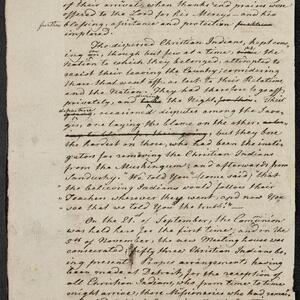 of their arrival, when thanks and praise were
offered to the Lord for his Mercy — and his
further blessing, assistance and protection,
implored.
The dispersed Christian Indians, kept com-
ing in, though but few at a time, as the
Nation to which they belonged, attempted to
resist their leaving the Country; considering
those that went off, as lost to their Relations
and the Nation. They had therefore to go off
privately, and during the Night, Their
departure occasioned disputes among the Sava-
ges, one laying the blame on the other,
but they bore
the hardest on those, who had been the insti-
gators for removing the Christian Indians
from the Muskingum; and afterwards from
Sandusky. "We told You (some said,) that
the believing Indians would follow their
Teachers wherever they went, and now You
see that we told You the truth."
On the 21st of September, the Communion
was held here for the first time; and on the
5th of November, the new Meeting house was
consecrated; fifty three Christian Indians be-
ing present. Proper arrangements having
been made at Detroit, for the reception of
all Christian Indians, who from time to time
might arrive, those Missionaries who had remain-